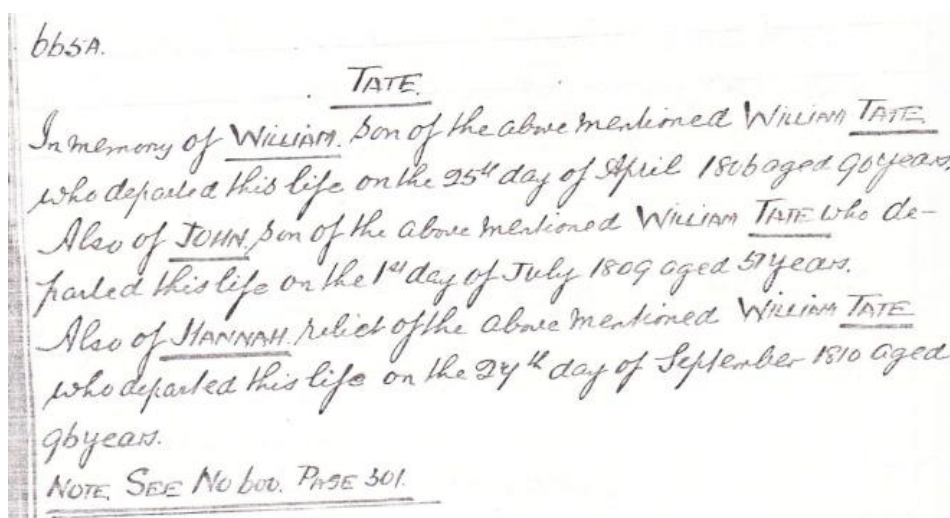 665A.
TATE.
In memory of WILLIAM. Son of the above mentioned WILLIAM TATE
who departed this life on the 25th day of April 1806 aged years,
Also of JOHN, son of the above mentioned WILLIAM TATE who de-
parted this life on the 1st day of July 1809 aged 57 years.
Also of HANNAH. relict of the above mentioned WILLIAM TATE
who departed this life on the day of September 1810 aged
96 years.
NOTE, SEE No 600. PAGE 301.